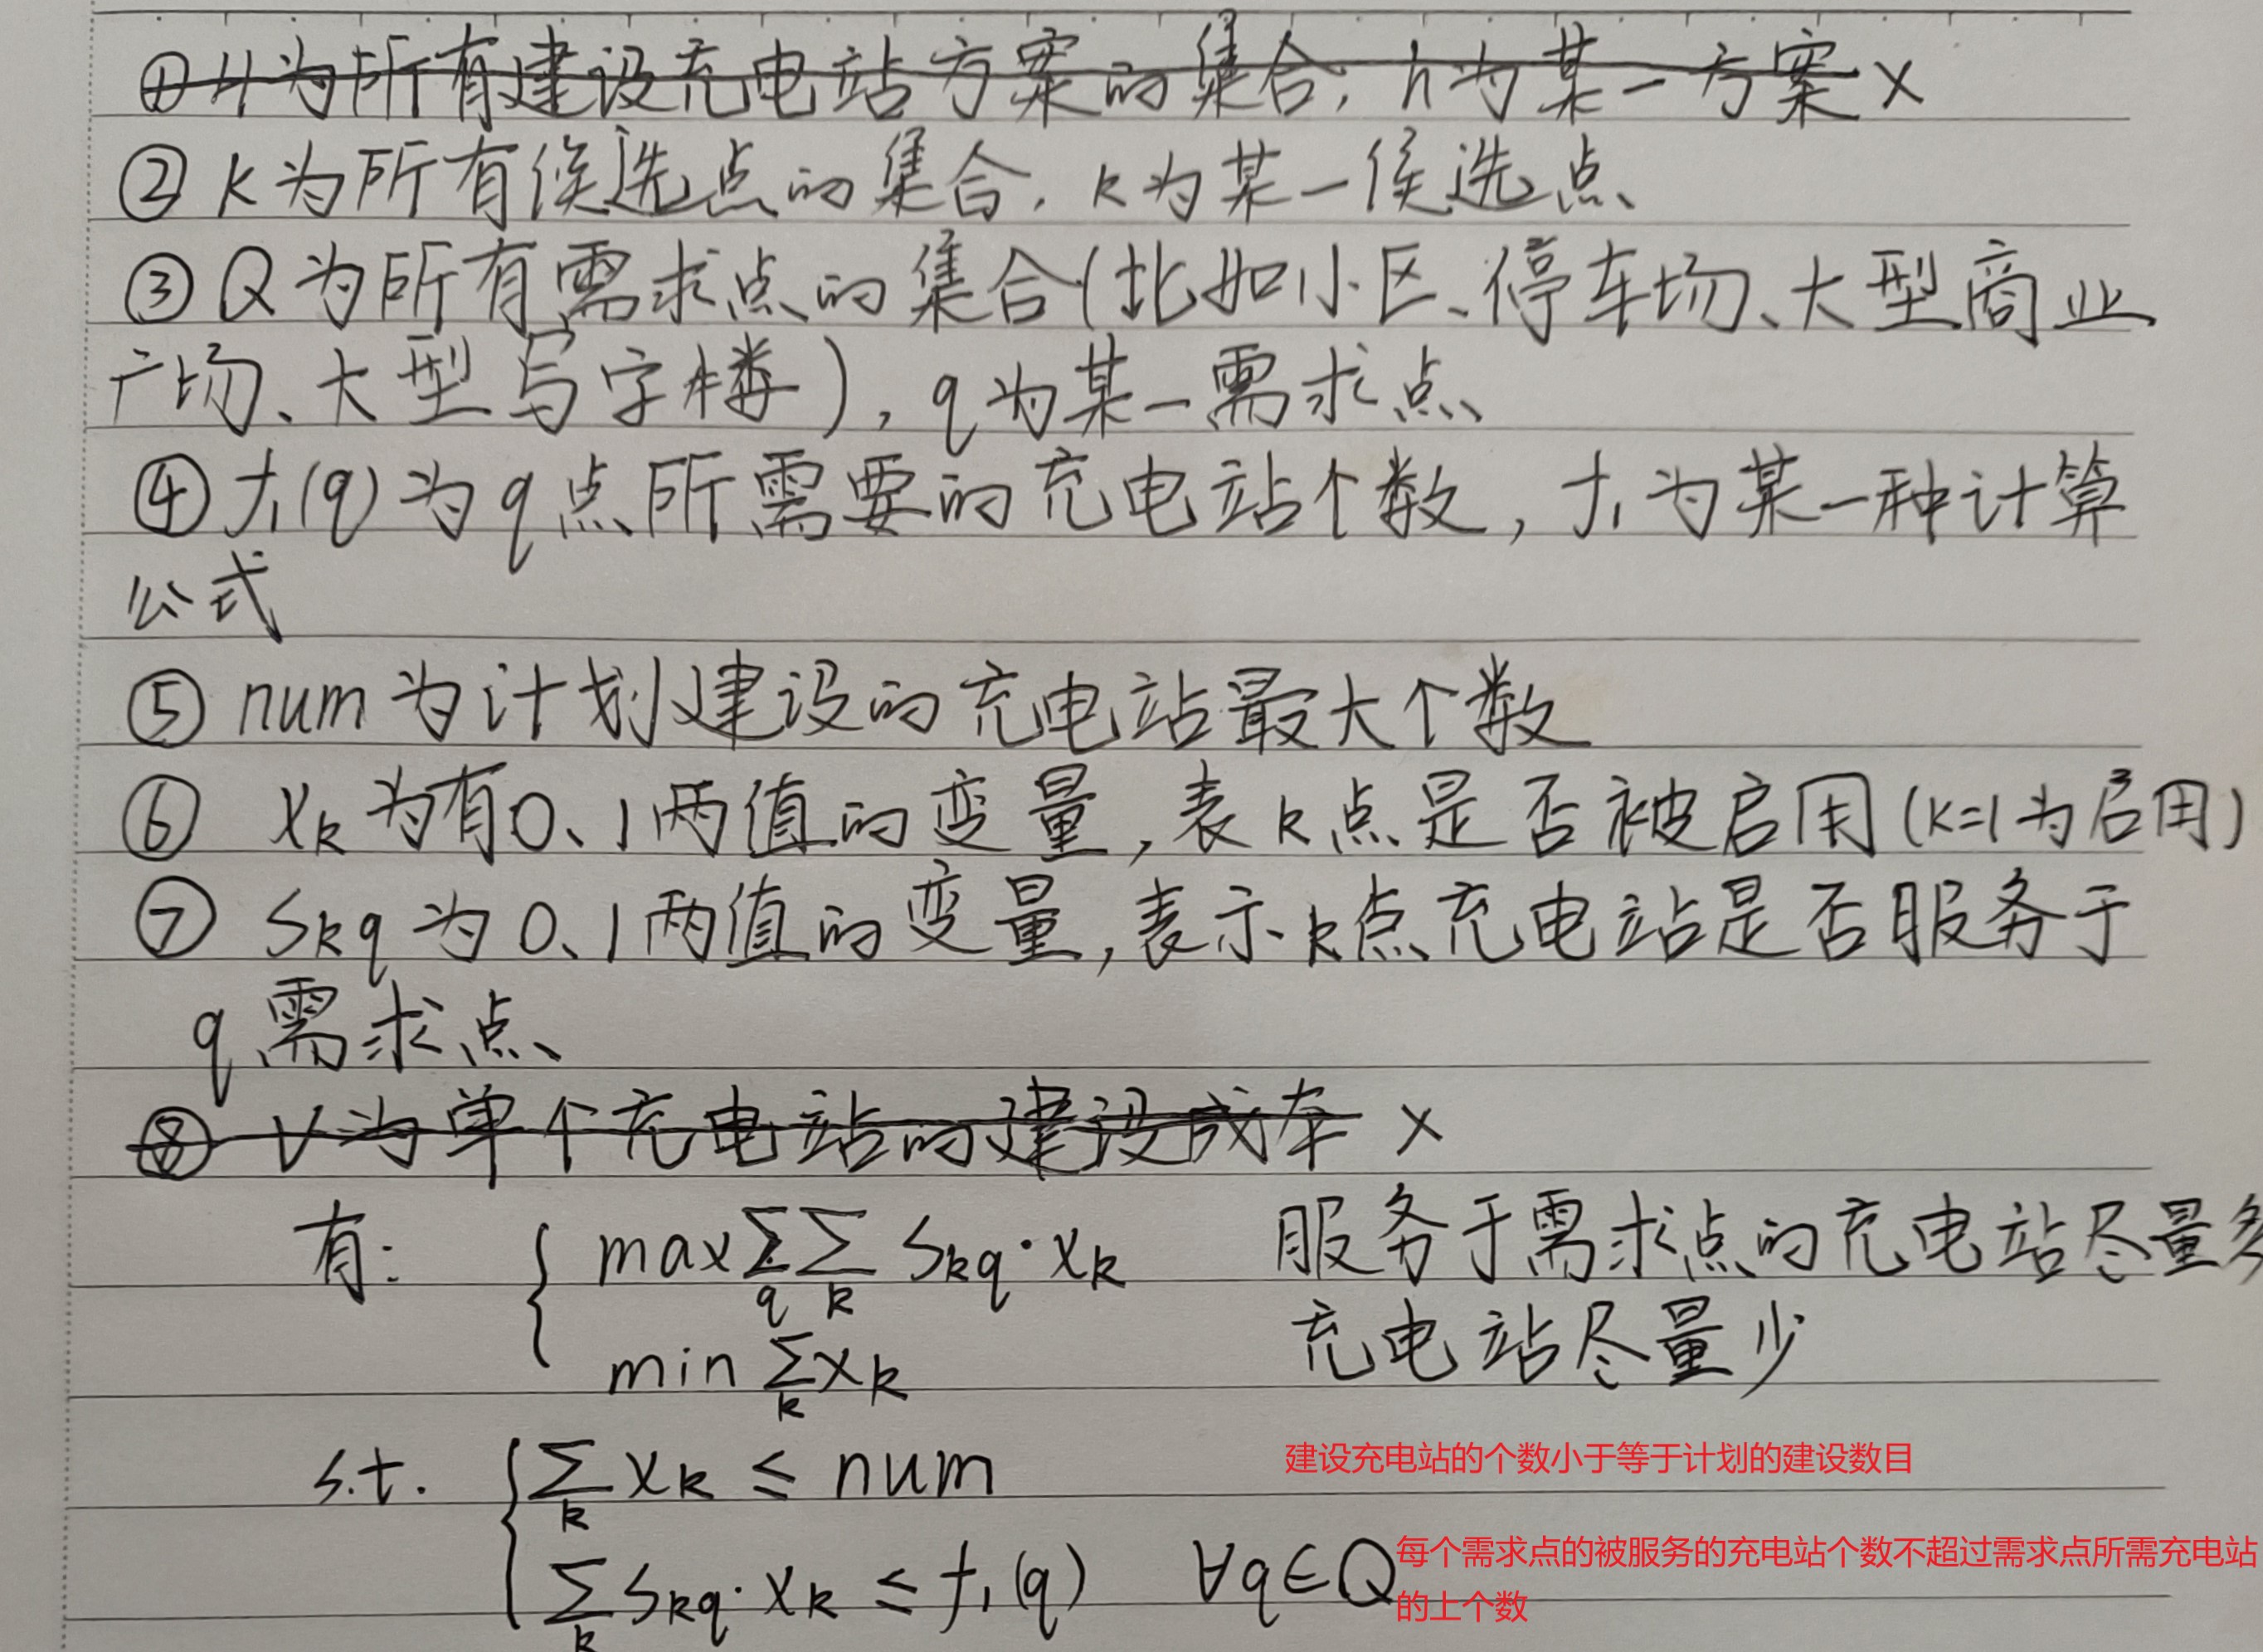 ①H为所有建设充电站方案的集合，h为某一方案 ×
② K为所有候选点的集合，k为某一候选点
③ Q为所有需求点的集合(比如小区、停车场、大型商业
广场、大型写字楼)，q为某一需求点
④ f₁(q)为q点所需要的充电站个数，f₁为某一种计算
公式
⑤ num为计划建设的充电站最大个数
⑥ xₖ为有0、1两值的变量，表k点是否被启用(k=1为启用)
⑦ Skq为0、1两值的变量，表示k点充电站是否服务于
q需求点
⑧ V为单个充电站的建设成本 ×
有: { max∑q∑k Skq·xk 服务于需求点的充电站尽量多
min ∑k xk 充电站尽量少
s.t. { ∑k xk ≤ num 建设充电站的个数小于等于计划的建设数目
∑k Skq·xk ≤ f₁(q) ∀q∈Q 每个需求点的被服务的充电站个数不超过需求点所需充电站
的上个数